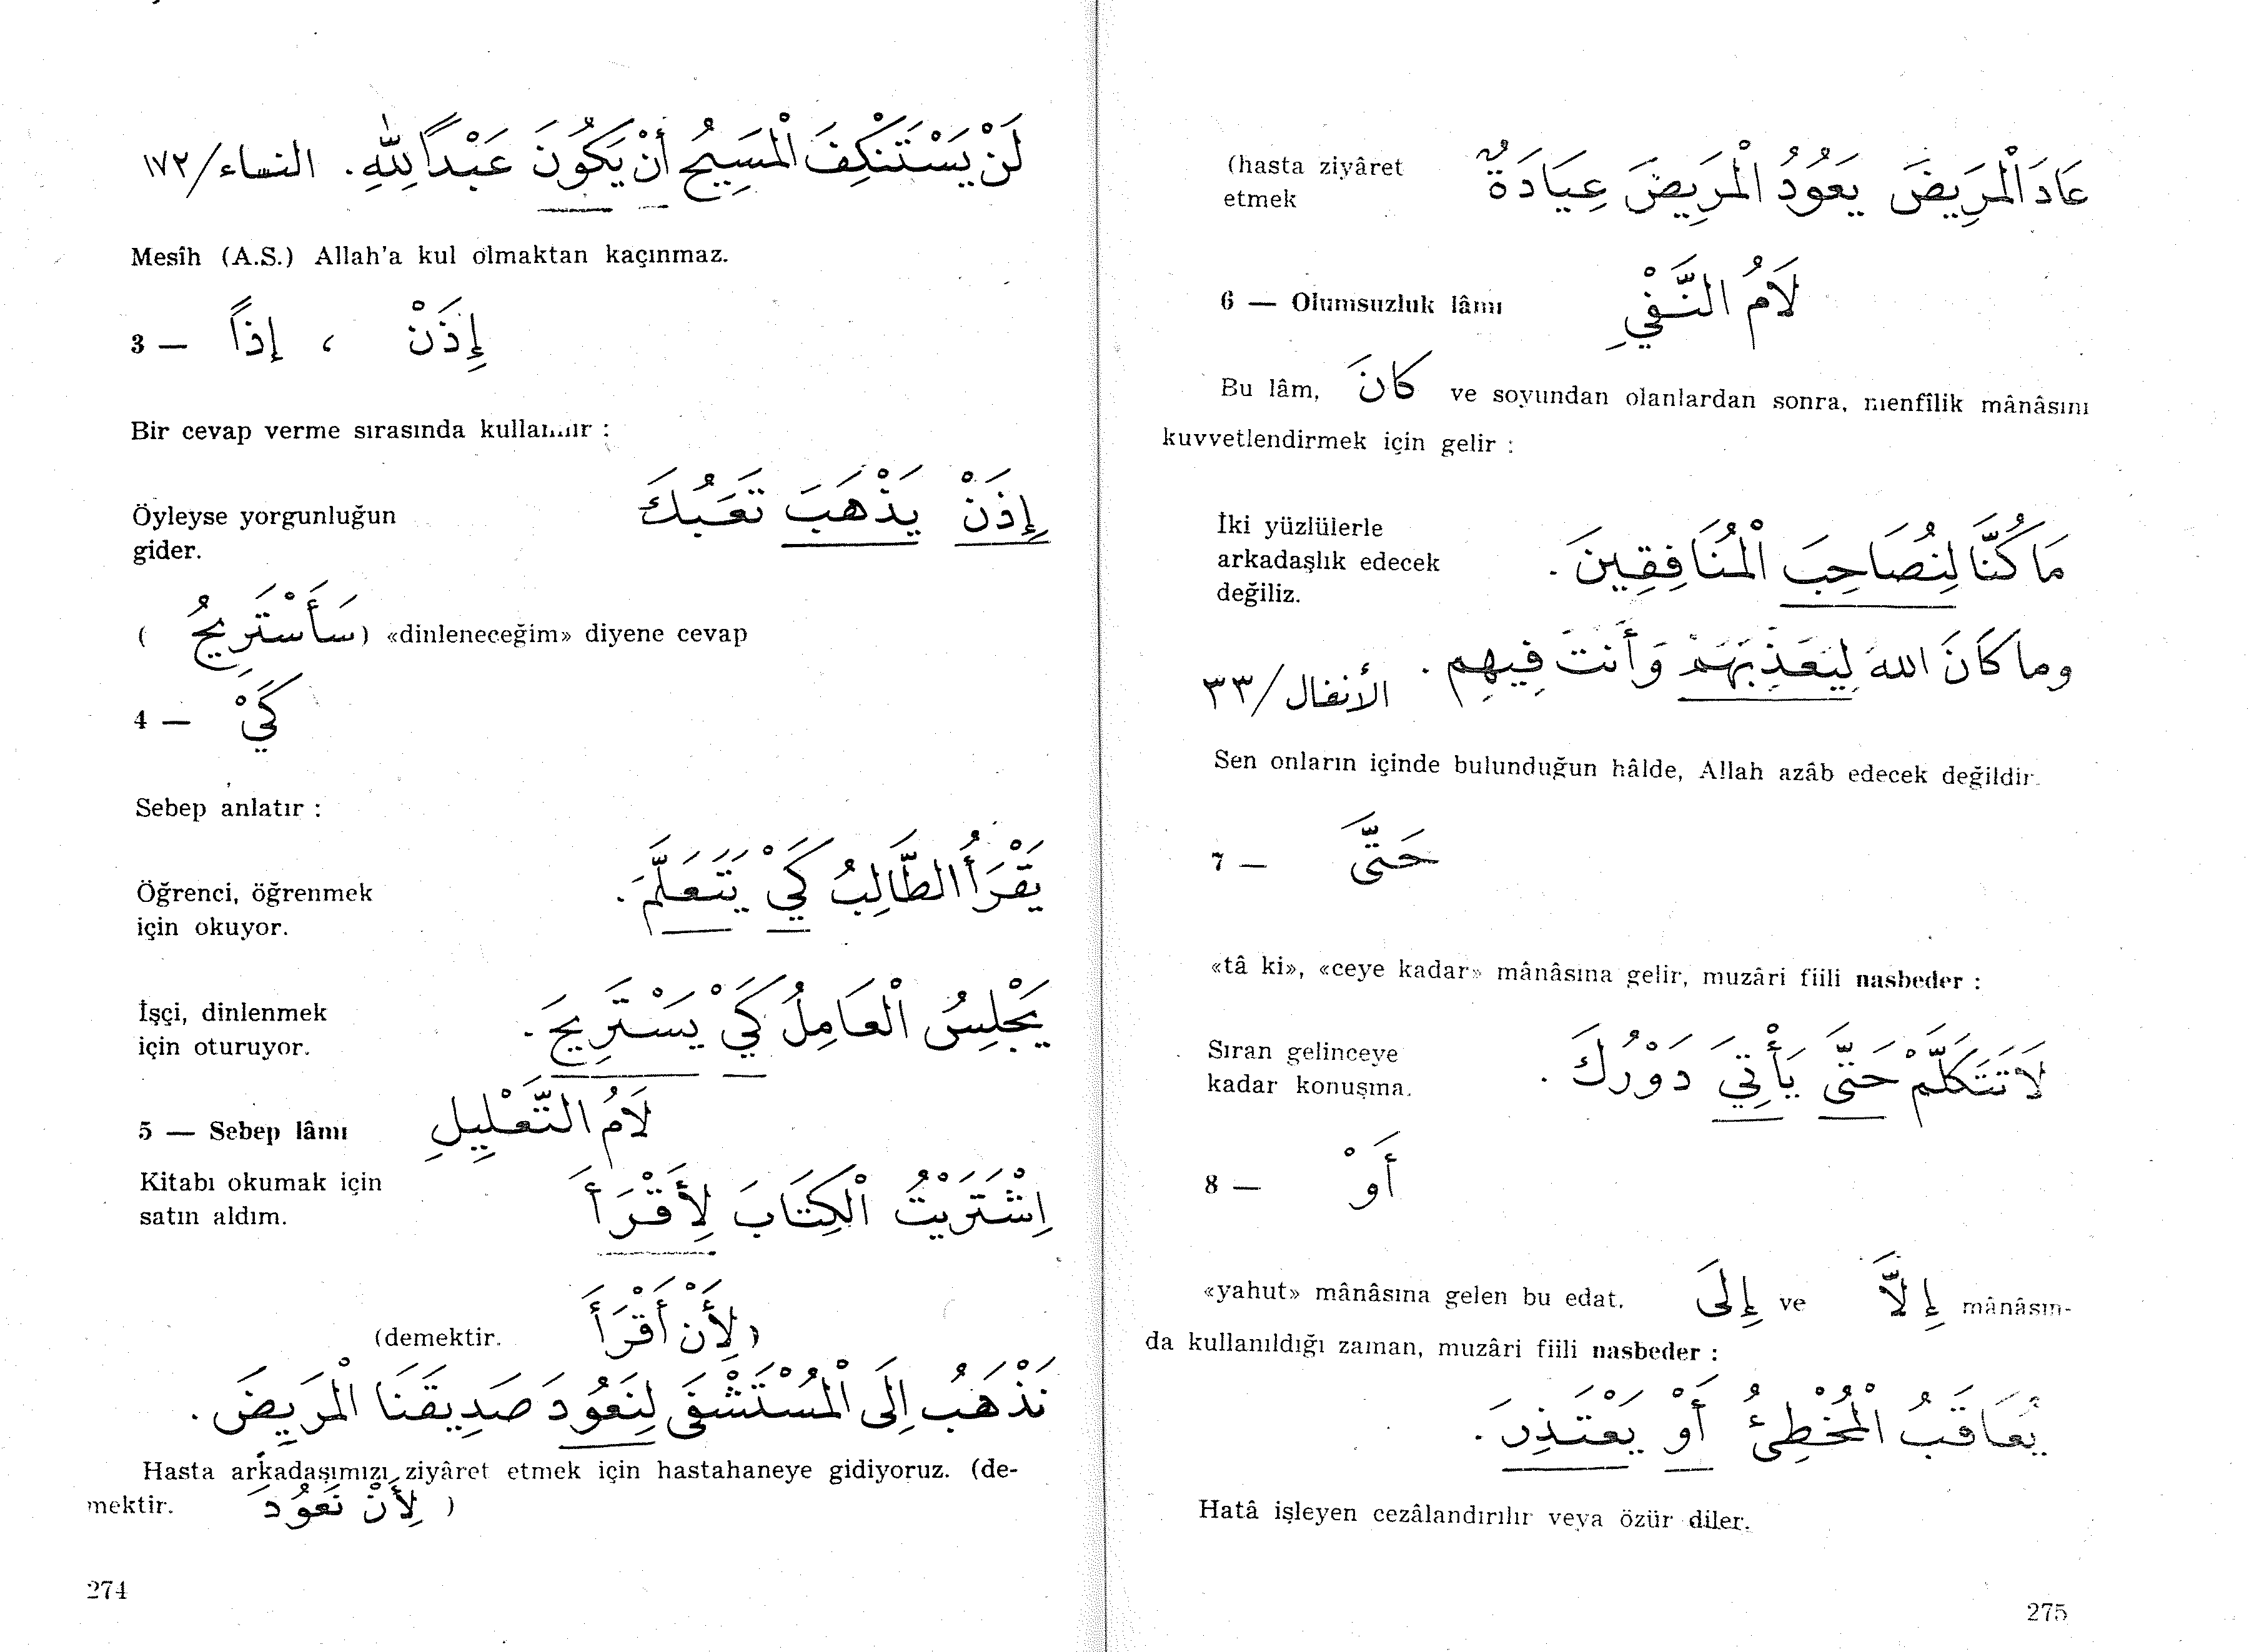 لَنْ يَسْتَنْكِفَ الْمَسِيحُ أَنْ يَكُونَ عَبْداً لِلّٰهِ . النساء/١٧٢
Mesîh (A.S.) Allah'a kul olmaktan kaçınmaz.
3 — إِذَنْ ، إِذاً
Bir cevap verme sırasında kullanılır :
Öyleyse yorgunluğun إِذَنْ يَذْهَبَ تَعَبُكَ
gider.
( سَأَسْتَرِيحُ ) «dinleneceğim» diyene cevap
4 — كَيْ
Sebep anlatır :
Öğrenci, öğrenmek يَقْرَأُ الطَّالِبُ كَيْ يَتَعَلَّمَ .
için okuyor.
İşçi, dinlenmek يَجْلِسُ الْعَامِلُ كَيْ يَسْتَرِيحَ .
için oturuyor.
5 — Sebep lâmı لَامُ التَّعْلِيلِ
Kitabı okumak için اِشْتَرَيْتُ الْكِتَابَ لِأَقْرَأَ
satın aldım.
(demektir. لِأَنْ أَقْرَأَ )
نَذْهَبُ إِلَى الْمُسْتَشْفَى لِنَعُودَ صَدِيقَنَا الْمَرِيضَ .
Hasta arkadaşımızı ziyâret etmek için hastahaneye gidiyoruz. (de-
mektir. لِأَنْ نَعُودَ )
274
(hasta ziyâret عَادَ الْمَرِيضَ يَعُودُ الْمَرِيضَ عِيَادَةٌ
etmek
6 — Olumsuzluk lâmı لَامُ النَّفْيِ
Bu lâm, كَانَ ve soyundan olanlardan sonra, menfîlik mânâsını
kuvvetlendirmek için gelir :
İki yüzlülerle
arkadaşlık edecek مَا كُنَّا لِنُصَاحِبَ الْمُنَافِقِينَ .
değiliz.
وما كَانَ اللهُ لِيُعَذِّبَهُمْ وَأَنْتَ فِيهِم . الأنفال/٣٣
Sen onların içinde bulunduğun hâlde, Allah azâb edecek değildir.
7 — حَتَّى
«tâ ki», «ceye kadar» mânâsına gelir, muzâri fiili nasbeder :
Sıran gelinceye لَا تَتَكَلَّمْ حَتَّى يَأْتِيَ دَوْرُكَ .
kadar konuşma.
8 — أَوْ
«yahut» mânâsına gelen bu edat, إِلَى ve إِلَّا mânâsın-
da kullanıldığı zaman, muzâri fiili nasbeder :
يُعَاقَبُ الْمُخْطِئُ أَوْ يَعْتَذِرَ .
Hatâ işleyen cezâlandırılır veya özür diler.
275